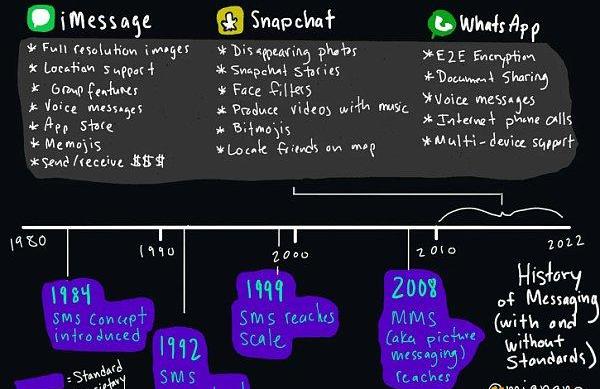 iMessage
* Full resolution images
* Location support
* Group features
* Voice messages
* App Store
* Memojis
* Send/receive $$$
Snapchat
* Disappearing photos
* Snapchat Stories
* Face filters
* Produce videos with music
* Bitmojis
* Locate friends on map
WhatsApp
* E2E Encryption
* Document Sharing
* Voice messages
* Internet phone calls
* Multi-device support
1980
1990
2000
2010
2022
1984
SMS concept
introduced
1992
SMS
1999
SMS reaches
scale
2008
MMS
(aka picture
messaging)
reaches
History
of Messaging
(with and
without
Standards)
= Standard